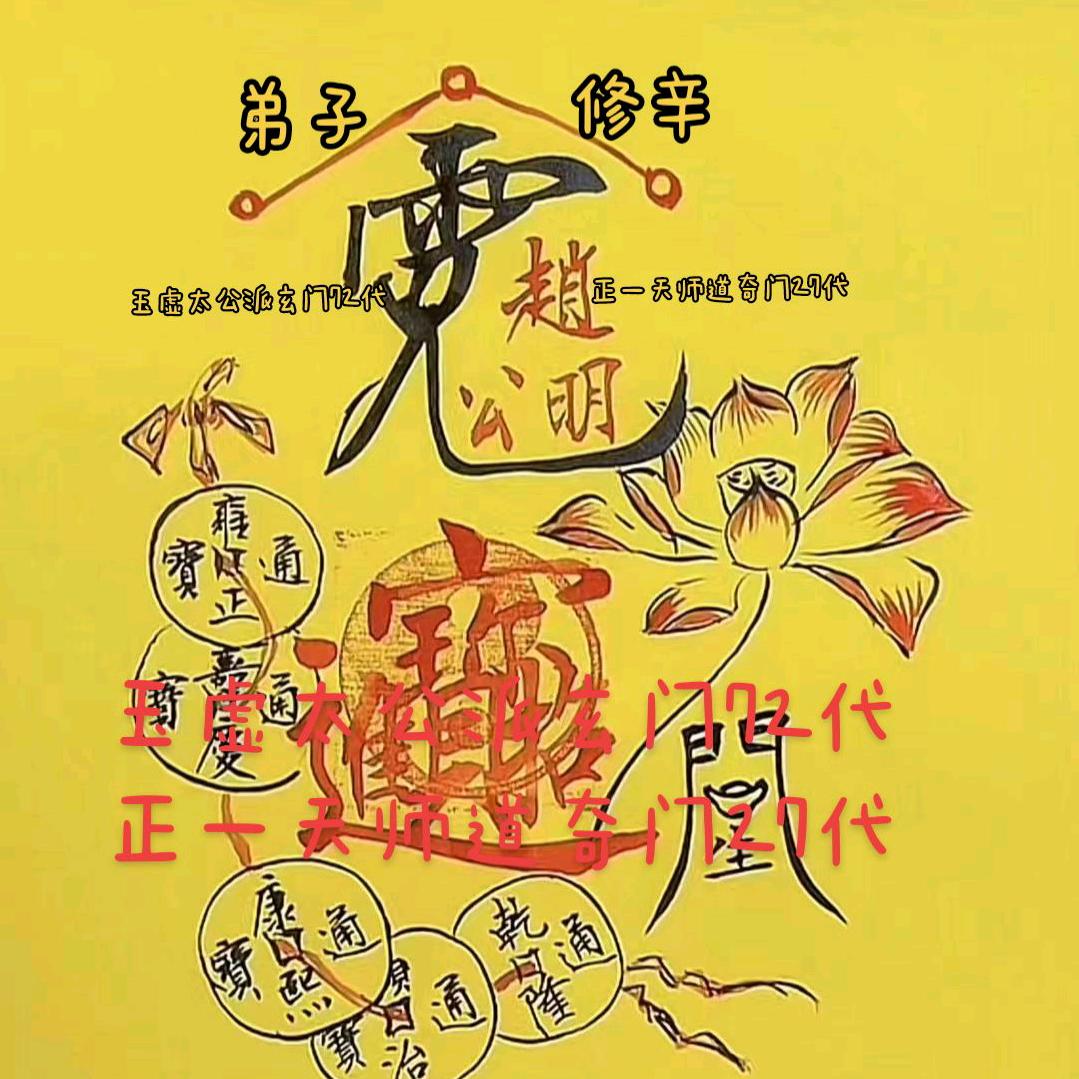 弟子 修辛
趙
玉虚太公派玄门72代 正一天师道奇门27代
公明
雍正通寶
嘉慶通寶
招財進寶
玉虚太公派玄门72代
正一天师道奇门27代
康熙通寶
治通寶
乾隆通